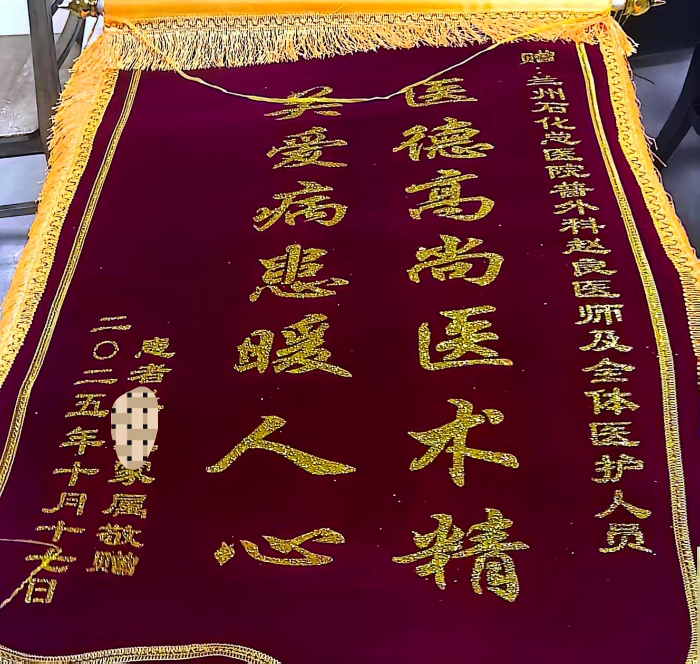 赠:兰州石化总医院普外科赵良医师及全体医护人员
医德高尚医术精
关爱病悲暖人心
患者
家属敬赠
二〇二五年十月十七日